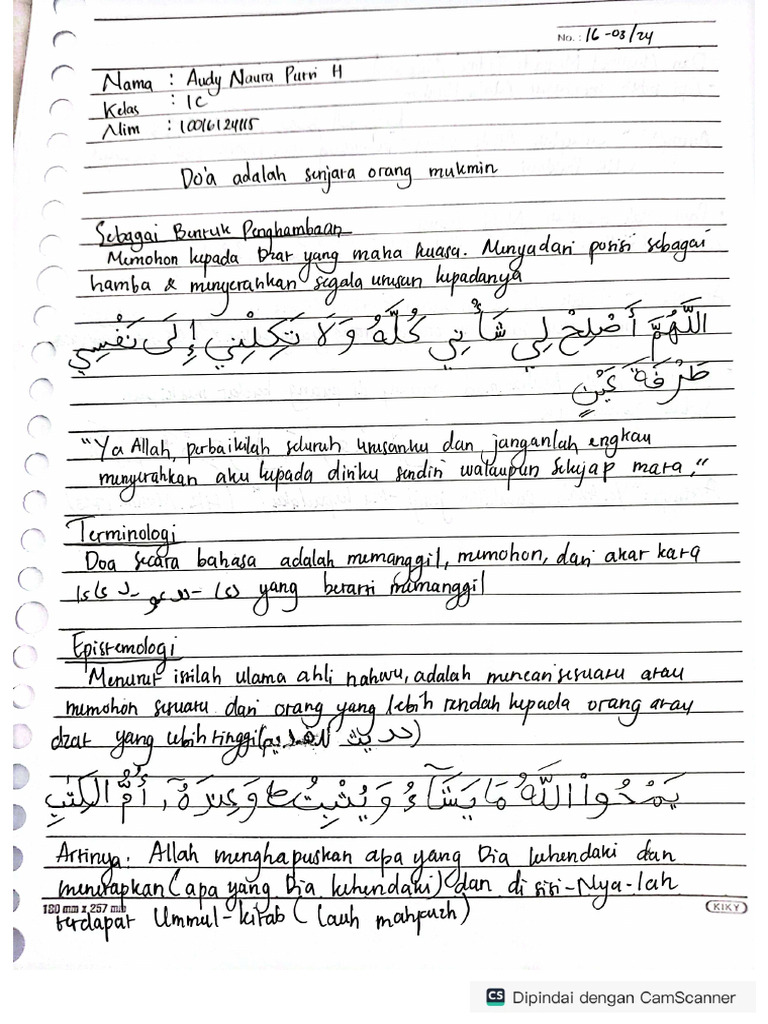 No. : 16-03/24
Nama : Audy Naura Putri H
Kelas : 1C
Nim : 10016124115
Do'a adalah senjara orang mukmin
Sebagai Bentuk Penghambaan
Memohon kepada Dzat yang maha kuasa. Menyadari posisi sebagai
hamba & menyerahkan segala urusan kepadanya
اللَّهُمَّ أَصْلِحْ لِي شَأْنِي كُلَّهُ وَلَا تَكِلْنِي إِلَى نَفْسِي
طَرْفَةَ عَيْنٍ
"Ya Allah, perbaikilah seluruh urusanku dan janganlah engkau
menyerahkan aku kepada diriku sendiri walaupun sekejap mata,"
Terminologi
Doa secara bahasa adalah memanggil, memohon, dari akar kata
yang berarti memanggil
Epistemologi
Menurut istilah ulama ahli nahwu, adalah mencari sesuatu atau
memohon sesuatu dari orang yang lebih rendah kepada orang atau
dzat yang lebih tinggi (حديث
يَمْحُوا۟ اللَّهُ مَا يَشَآءُ وَيُثْبِتُ ۖ وَعِندَهُۥٓ أُمُّ الْكِتٰبِ
Artinya: Allah menghapuskan apa yang Dia kehendaki dan
menetapkan (apa yang Dia kehendaki) dan di sisi-Nya-lah
terdapat Ummul-kitab (lauh mahfuzh)
180 mm x 257 mm
KIKY
CS Dipindai dengan CamScanner